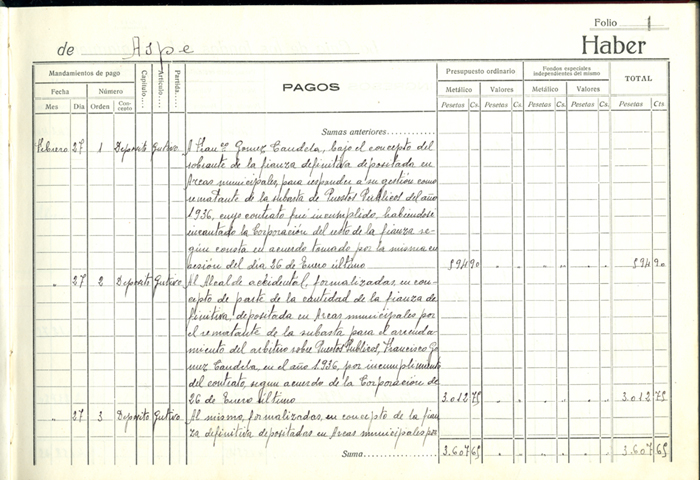 Folio 1
de Aspe Haber
Mandamientos de pago Capítulo.... Artículo.... Partida.... PAGOS Presupuesto ordinario Fondos especiales independientes del mismo TOTAL
Fecha Número Metálico Valores Metálico Valores
Mes Día Orden Concepto Pesetas Cs. Pesetas Cs. Pesetas Cs. Pesetas Cs. Pesetas Cts
Sumas anteriores
Febrero 27 1 Deposito Gustivo A Franco Gomez Candela, bajo el concepto del
sobrante de la fianza definitiva depositada en
Arcas municipales, para responder a su gestión como
rematante de la subasta de Puestos Publicos del año
1936, cuyo contrato fué incumplido, habiendose
incautado la Corporación del resto de la fianza se-
gún consta en acuerdo tomado por la misma en
sesión del dia 26 de Enero último 594 90 " " " " " " 594 90
" 27 2 Deposito Gustivo Al Alcalde accidental, formalizadas, en con-
cepto de parte de la cantidad de la fianza de-
finitiva, depositada en Arcas municipales por
el rematante de la subasta para el arrenda-
miento del arbitrio sobre Puestos Publicos, Francisco Go-
mez Candela, en el año 1936, por incumplimiento
del contrato, segun acuerdo de la Corporación de
26 de Enero último 3.012 75 " " " " " " 3.012 75
" 27 3 Deposito Gustivo Al mismo, formalizadas, en concepto de la fian-
za definitiva depositadas en Arcas municipales por
Suma 3.607 65 " " " " " " 3.607 65